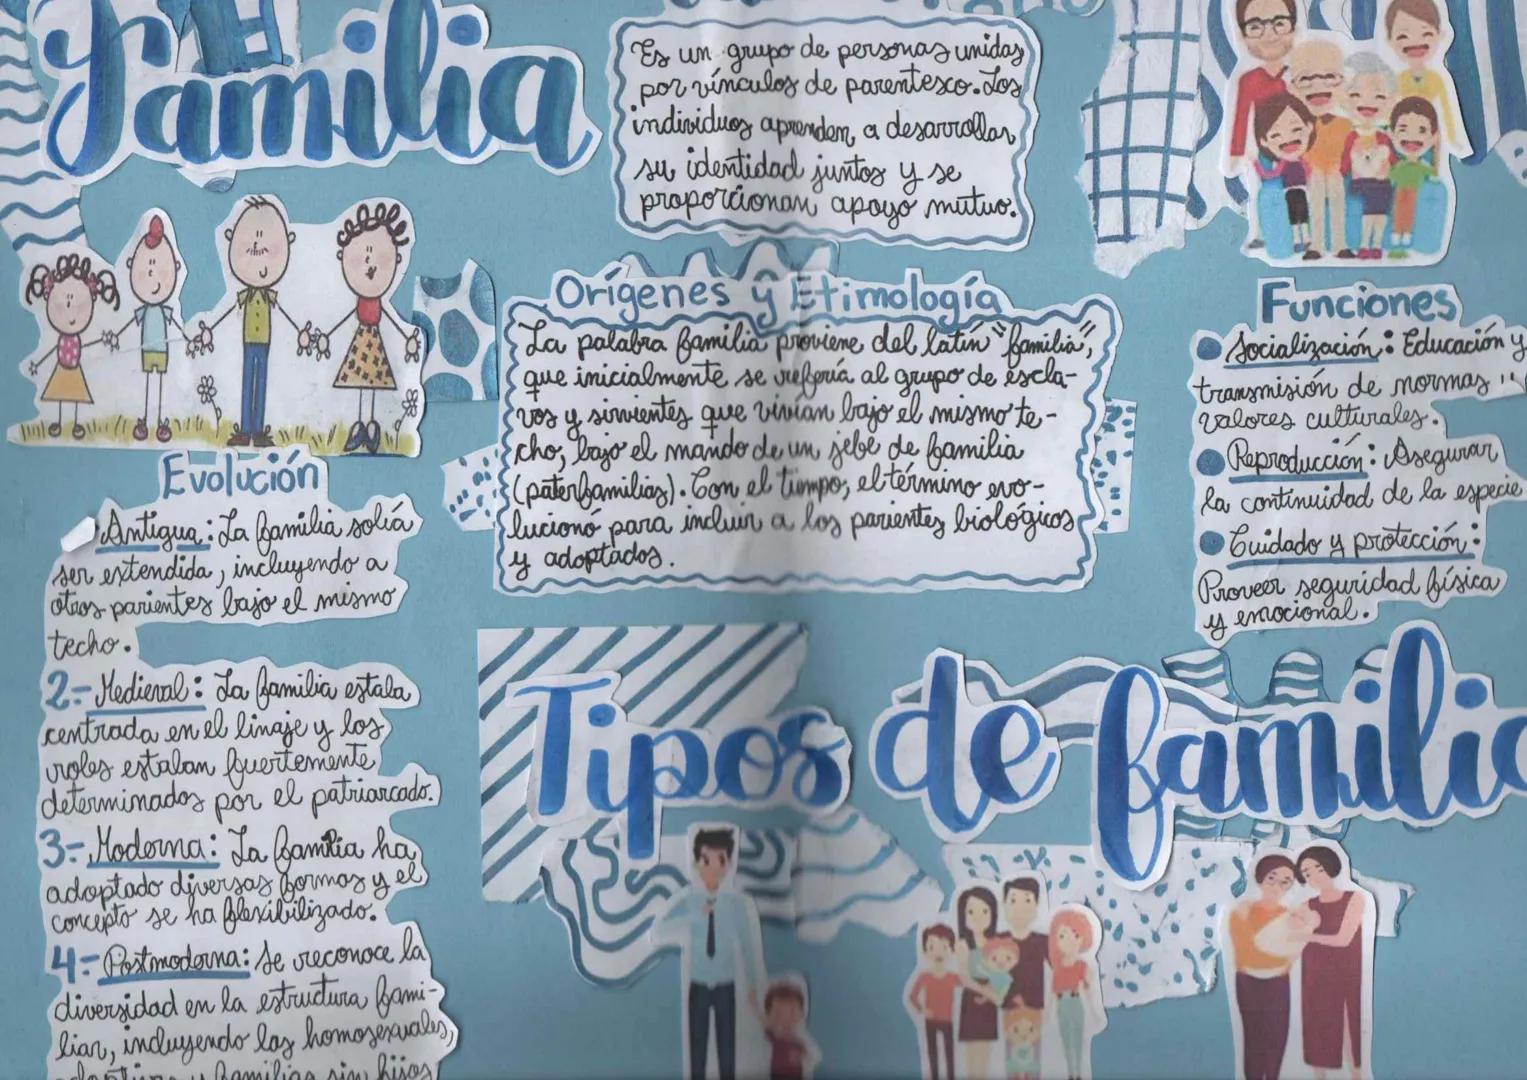 Familia
Es un grupo de personas unidas
por vínculos de parentesco. Los
individuos aprenden a desarrollar
su identidad juntos y se
proporcionan apoyo mutuo.
Orígenes y Etimología
La palabra familia proviene del latín "familia",
que inicialmente se refería al grupo de escla-
vos y sirvientes que vivían bajo el mismo te-
cho, bajo el mando de un jefe de familia
(paterfamilias). Con el tiempo, el término evo-
lucionó para incluir a los parientes biológicos
y adoptados.
Funciones
Socialización: Educación y
transmisión de normas y
valores culturales.
Reproducción: Asegurar
la continuidad de la especie
Cuidado y protección:
Proveer seguridad física
y emocional.
Evolución
Antigua: La familia solía
ser extendida, incluyendo a
otros parientes bajo el mismo
techo.
2.- Medieval: La familia estaba
centrada en el linaje y los
roles estaban fuertemente
determinados por el patriarcado.
3.- Moderna: La familia ha
adoptado diversas formas y el
concepto se ha flexibilizado.
4.- Postmoderna: Se reconoce la
diversidad en la estructura fami-
liar, incluyendo las homosexuales,
adoptivas y familias sin hijos
Tipos de familia